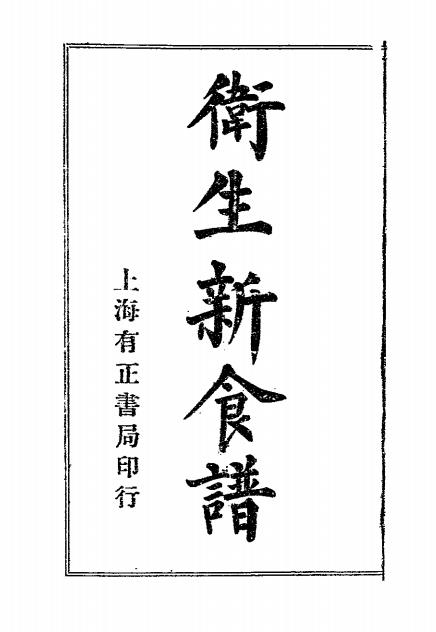 衛生新食譜
上海有正書局印行